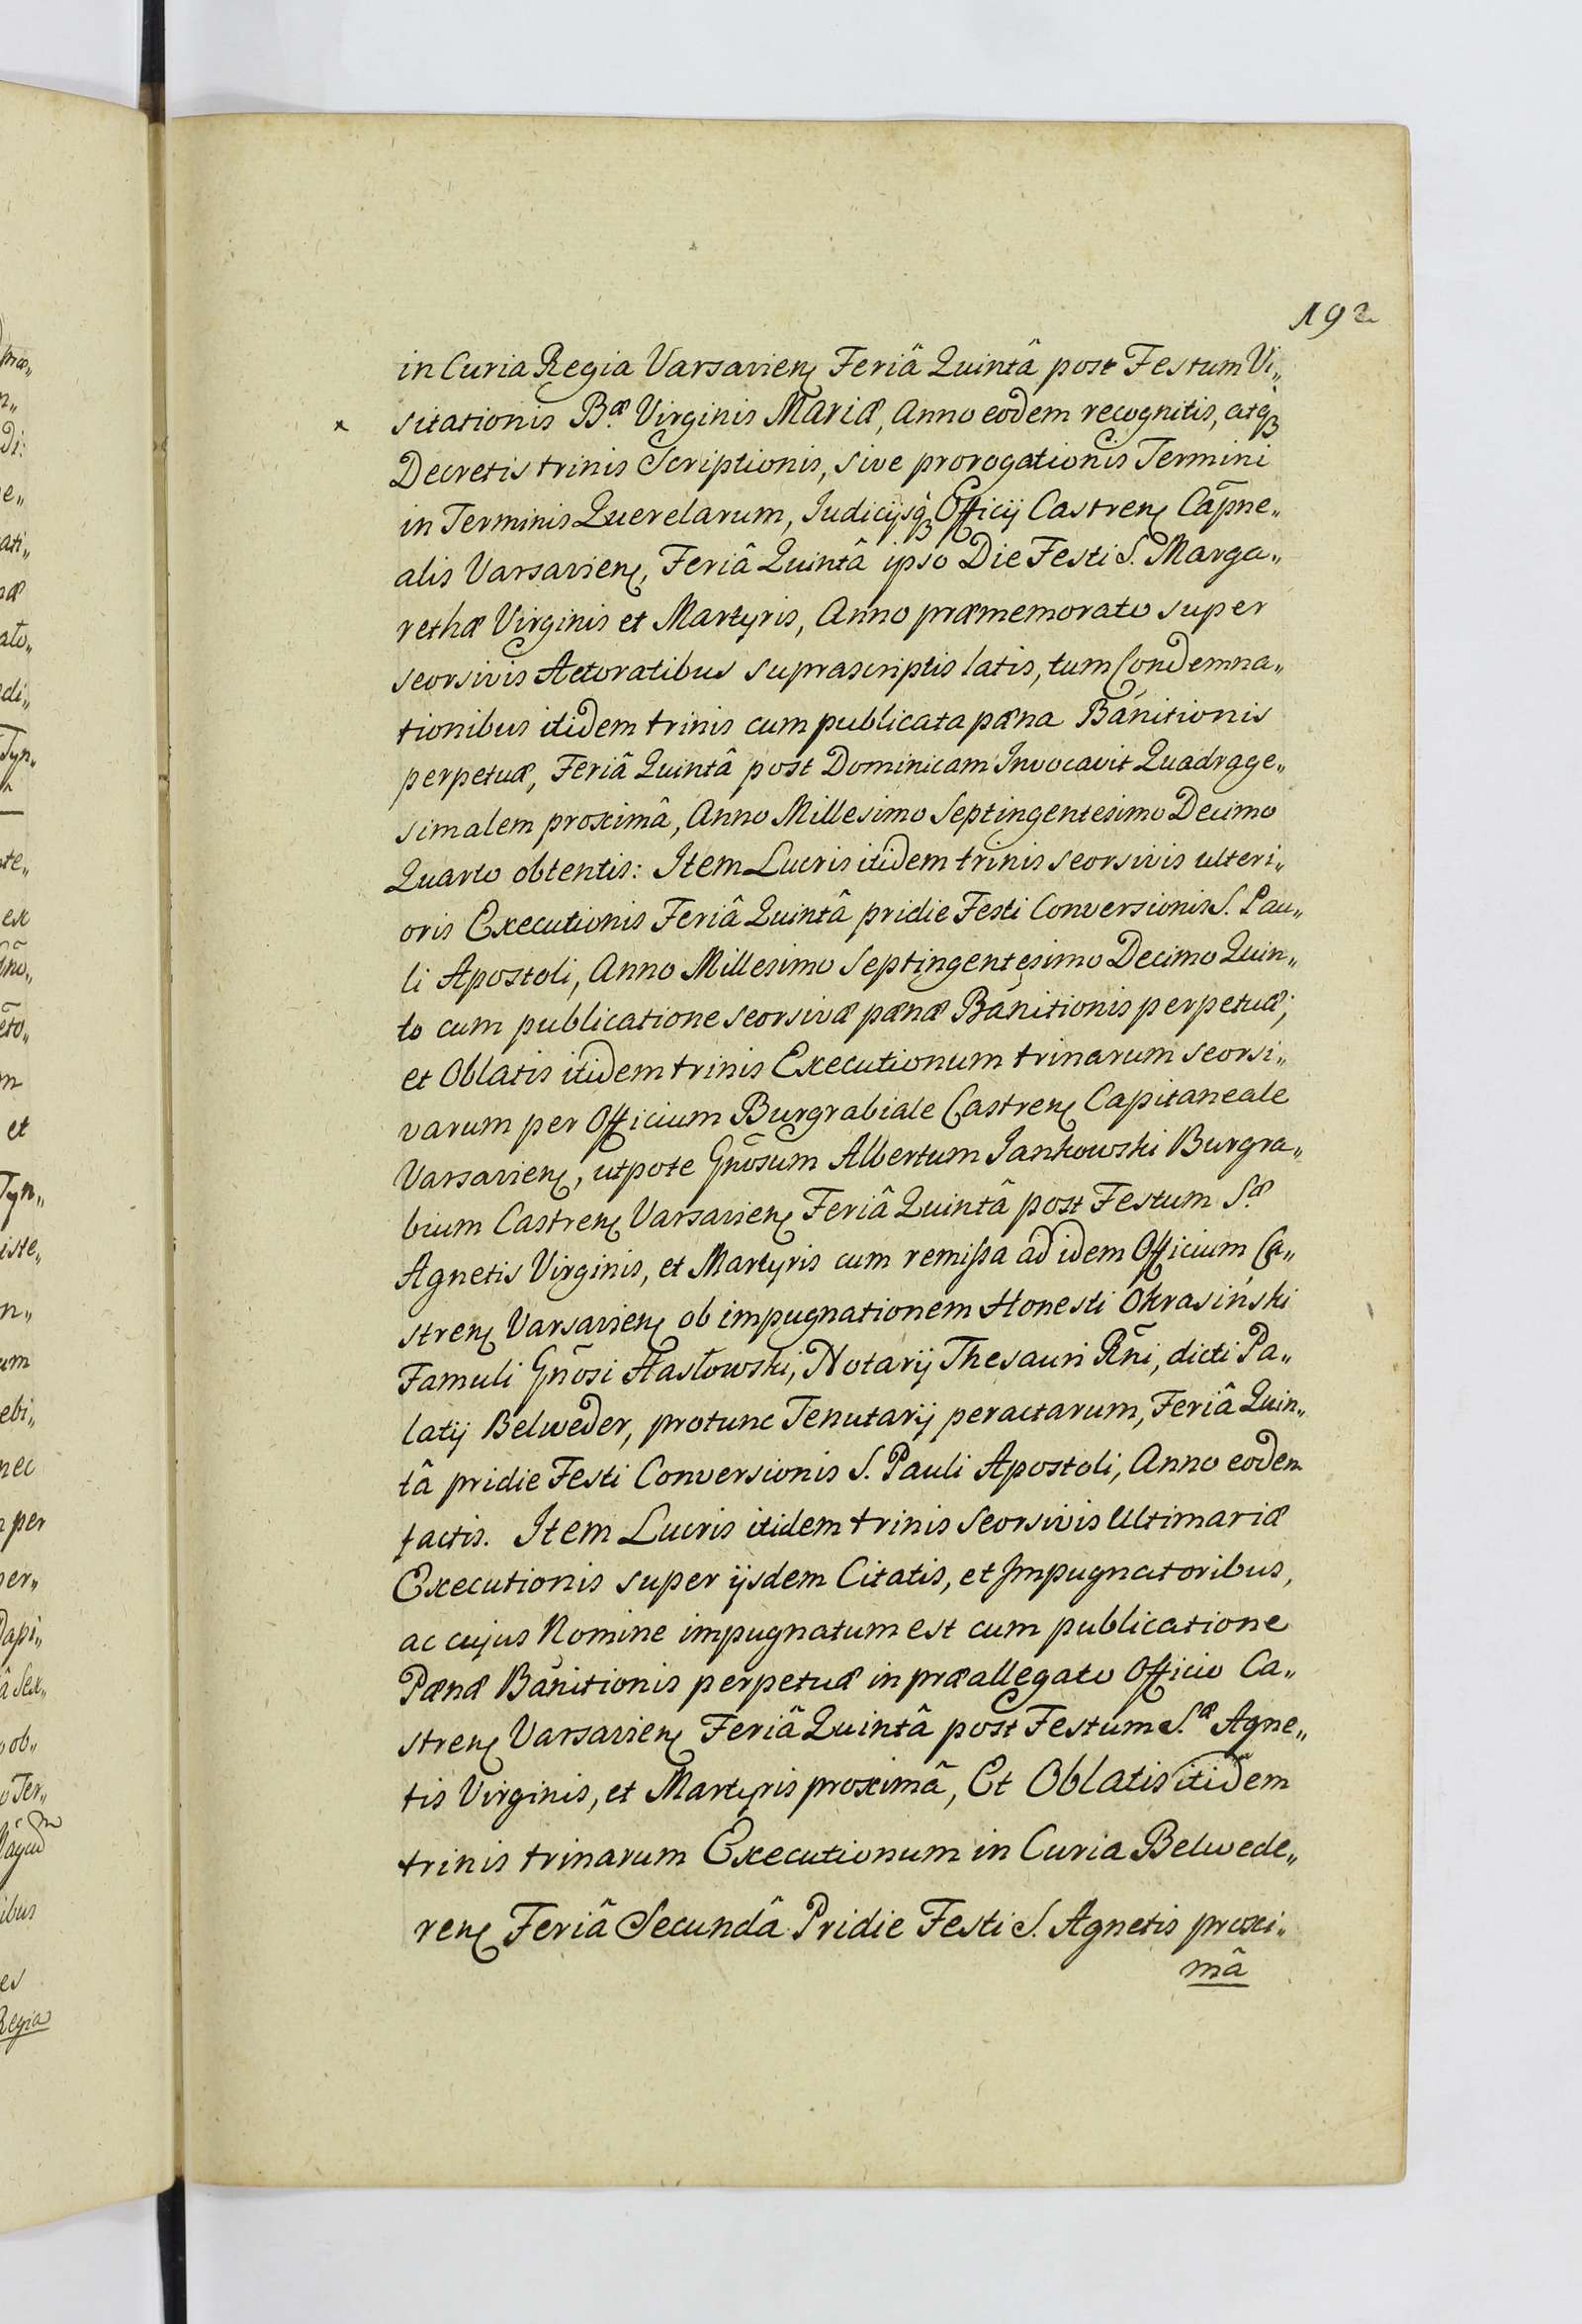 192
in Curia Regia Varsavien Feriâ Quintâ post Festum Vi„
sitationis B.æ Virginis Mariæ, Anno eodem recognitis, atq3
Decretis trinis Scriptionis, sive prorogationis Termini
in Terminis Querelarum, Judicijsq3 Officij Castren Cap̄ne„
alis Varsavien, Feriâ Quintâ ipso Die Festi S. Marga„
rethæ Virginis et Martyris, Anno præmemorato super
seorsivis Actoratibus suprascriptis latis, tum Condemna„
tionibus itidem trinis cum publicata pæna Bānitionis
perpetuæ, Feriâ Quintâ post Dominicam Invocavit Quadrage„
simalem proximâ, Anno Millesimo Septingentesimo Decimo
Quarto obtentis: Item Lucris itidem trinis seorsivis ulteri„
oris Executionis Feriâ Quintâ pridie Festi Conversionis S. Pau„
li Apostoli, Anno Millesimo Septingentesimo Decimo Quin„
to cum publicatione seorsivæ pænæ Bānitionis perpetuæ;
et Oblatis itidem trinis Executionum trinarum seorsi„
varum per Officium Burgrabiale Castren Capitaneale
Varsavien, utpote Gn̄osum Albertum Jankowski Burgra„
bium Castren Varsavien Feriâ Quintâ post Festum S.æ
Agnetis Virginis, et Martyris cum remissa ad idem Officium Ca„
stren Varsavien ob impugnationem Honesti Okrasiński
Famuli Gn̄osi Hasłowski, Notarij Thesauri Rn̄i, dicti Pa„
latij Belweder, protunc Tenutarij peractarum, Feriâ Quin„
tâ pridie Festi Conversionis S. Pauli Apostoli, Anno eodem
factis. Item Lucris itidem trinis Seorsivis Ultimariæ
Executionis super ijsdem Citatis, et Impugnatoribus,
ac cujus Nomine impugnatum est cum publicatione
Pænæ Bānitionis perpetuæ in præallegato Officio Ca„
stren Varsavien Feriâ Quintâ post Festum S.æ Agne„
tis Virginis, et Martyris proximâ, Et Oblatis itidem
trinis trinarum Executionum in Curia Belwede„
ren Feriâ Secundâ Pridie Festi S. Agnetis proxi„
mâ